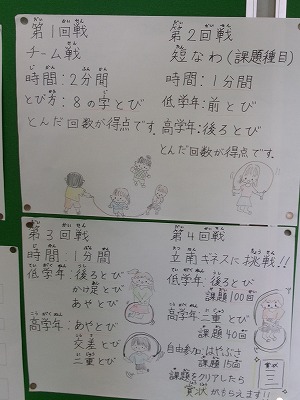 第1回戦
チーム戦
時間：2分間
とび方：8の字とび
とんだ回数が得点です。
第2回戦
短なわ(課題種目)
時間：1分間
低学年：前とび
高学年：後ろとび
とんだ回数が得点です。
第3回戦
時間：1分間
低学年：後ろとび
かけ足とび
あやとび
高学年：あやとび
交差とび
二重とび
第4回戦
立南ギネスに挑戦!!
低学年：後ろとび
課題100回
高学年：二重とび
課題40回
自由参加：はやぶさ
課題15回
課題をクリアしたら
賞状がもらえます!!
賞状